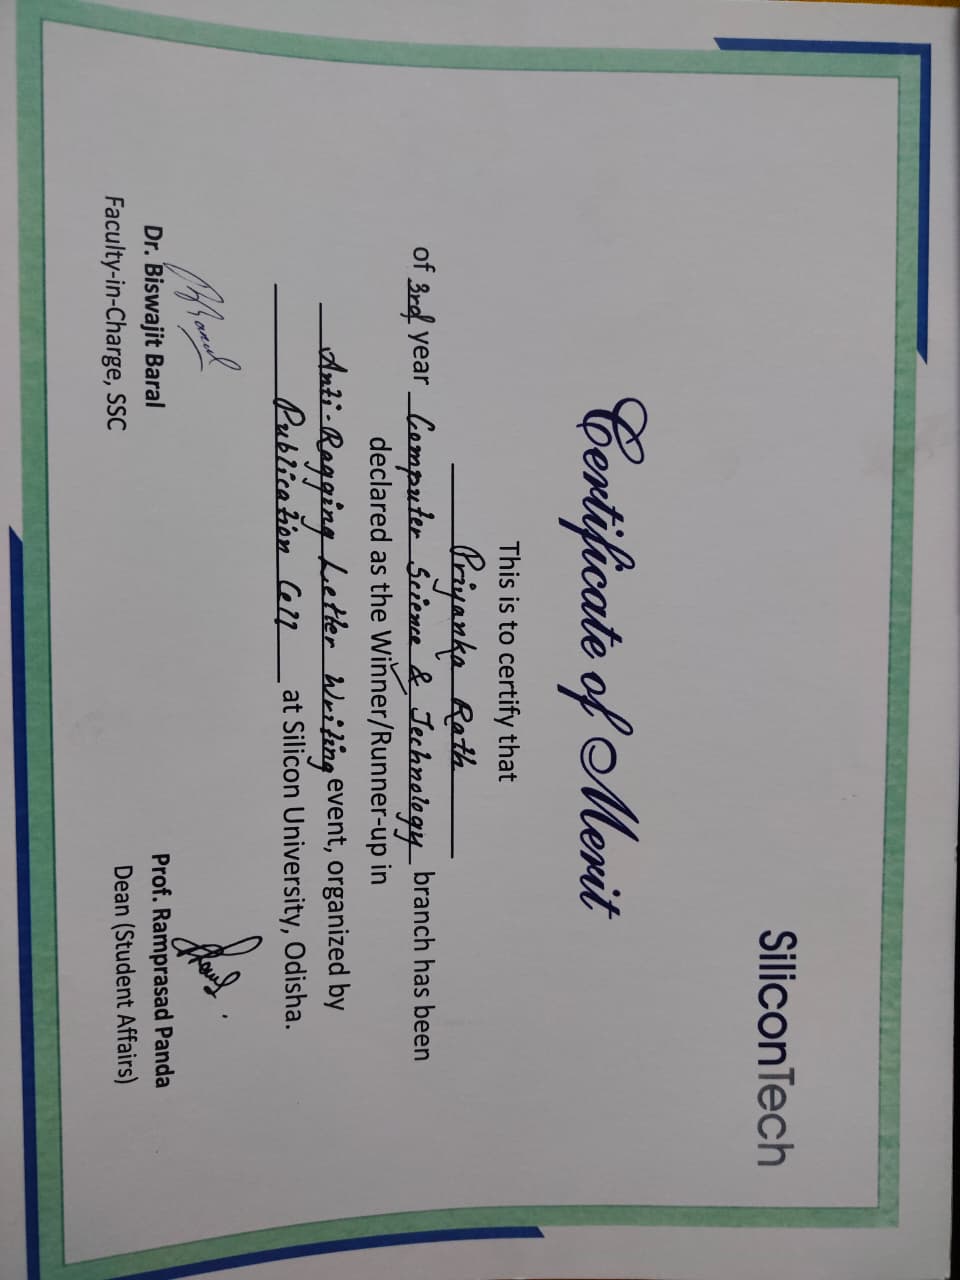 SiliconTech
Certificate of Merit
This is to certify that
Priyanka Rath
of 3rd year Computer Science & Technology branch has been
declared as the Winner/Runner-up in
Anti-Ragging Letter Writing event, organized by
Publication Cell at Silicon University, Odisha.
Dr. Biswajit Baral
Faculty-in-Charge, SSC
Prof. Ramprasad Panda
Dean (Student Affairs)